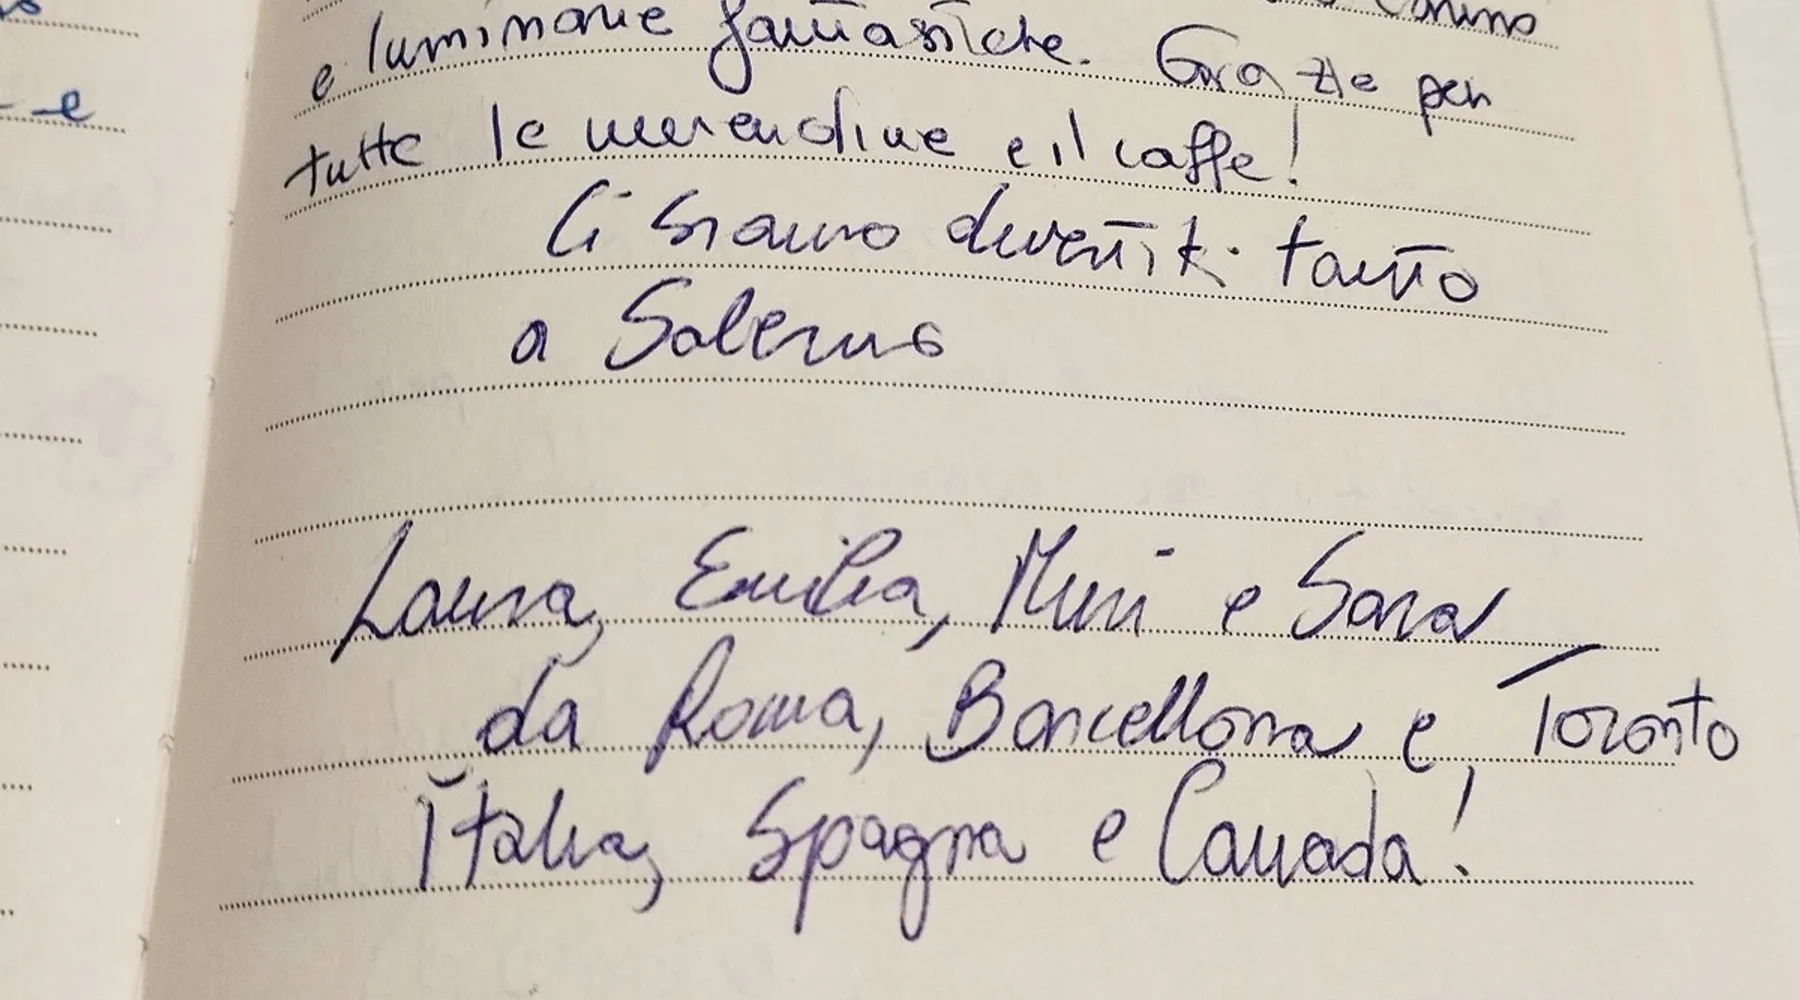 e luminarie fantastiche. Grazie per
tutte le merendine e il caffe!
Ci siamo divertiti tanto
a Salerno
Laura, Emilia, Miri e Sara
da Roma, Barcellona e Toronto
Italia, Spagna e Canada!